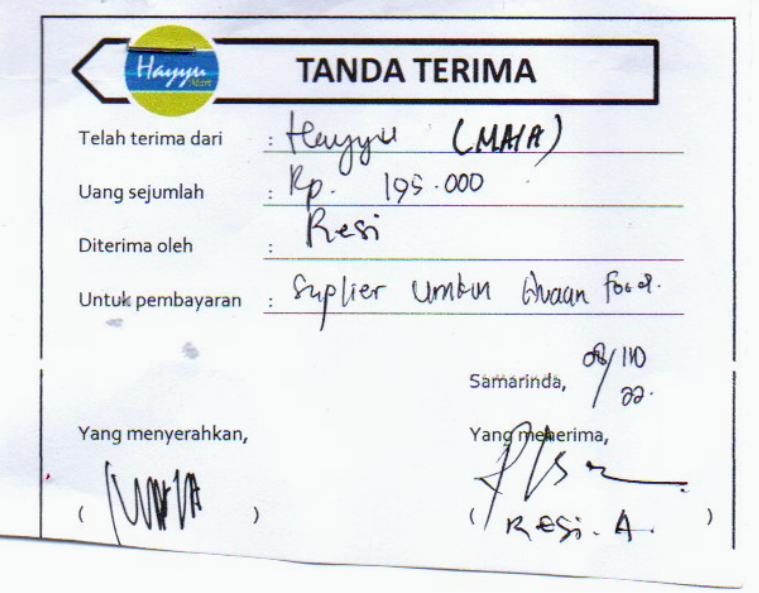 Hayyu
Mart
TANDA TERIMA
Telah terima dari : Hayyu (MAYA)
Uang sejumlah : Rp. 195.000
Diterima oleh : Resi
Untuk pembayaran : Suplier Umkm Food.
Samarinda, 08/10
22.
Yang menyerahkan,
Yang menerima,
( )
( Resi. A. )